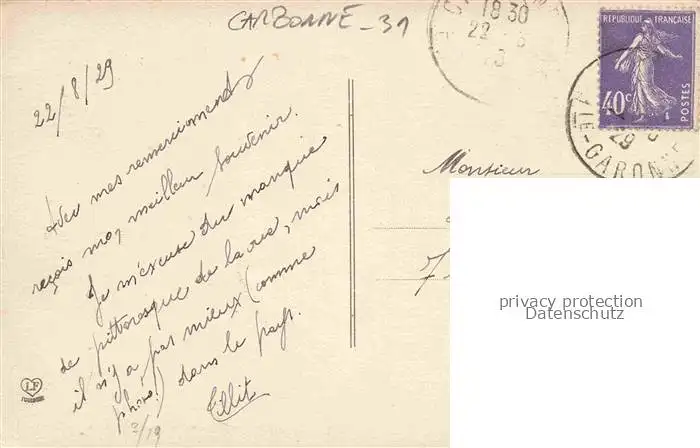 CARBONNE - 31
18 30
22 - 8
RÉPUBLIQUE FRANÇAISE
40c
POSTES
29
LE-GARONNE
22/8/29
Avec mes remerciements
reçois mon meilleur souvenir.
Je m'excuse du manque
de pittoresque de la vue, mais
il n'y a pas mieux (comme
photo) dans le pays.
Monsieur
LF
TOULOUSE
privacy protection
Datenschutz